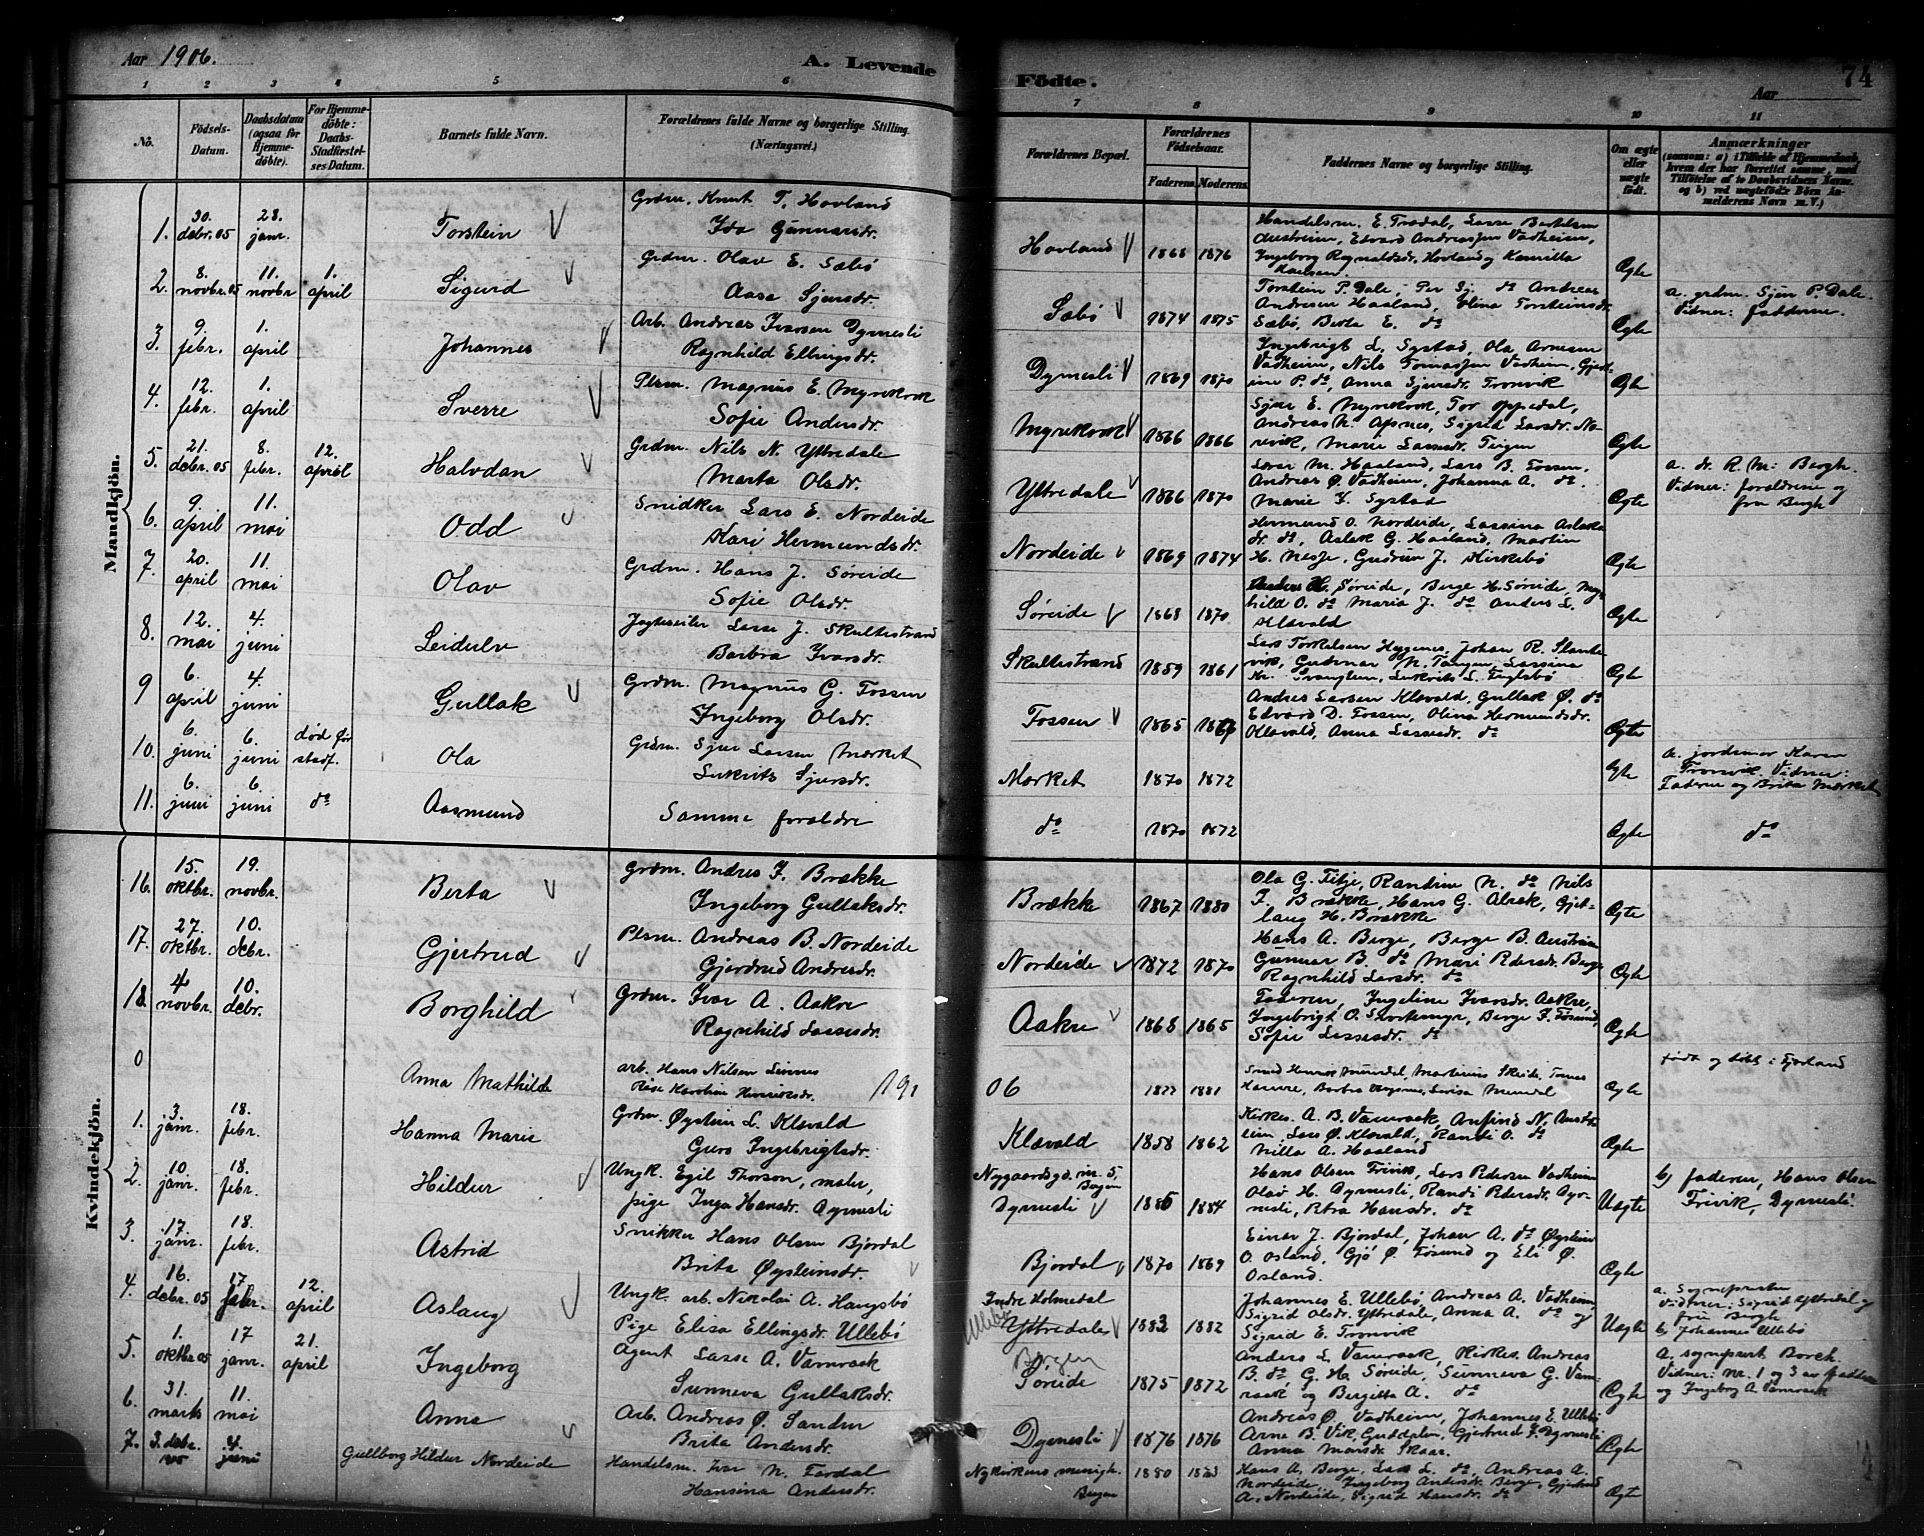 Aar 1906.
A. Levende
Födte.
Aar
74
1 2 3 4 5 6 7 8 9 10 11
No.
Födsels-Datum.
Daabsdatum (ogsaa for Hjemme-döbte).
For Hjemme-döbte: Daabs-Stadfæstelses Datum.
Barnets fulde Navn.
Forældrenes fulde Navne og borgerlige Stilling. (Næringsvei.)
Forældrenes Bopæl.
Forældrenes Födselsaar.
Faderens. Moderens.
Faddernes Navne og borgerlige Stilling.
Om ægte eller uægte födt.
Anmærkninger
(saasom: a) i Tilfælde af Hjemmedaab, hvem der har forrettet samme, med Tilföielse af to Daabsvidners Navne, og b) ved uægteföde Börn Anmelderens Navn m.V.)
Mandkjön.
1. 30. debr. 05 28. janr. Torstein Grdm. Knut T. Hovland
Ida Gunnarsdr. Hovland 1868 1876 Handelsm. E. Tredal, Lasse Bertelsen
Austreim, Edvard Andreassen Vadheim,
Ingeborg Ragnaldsdr. Hovland og Kamilla
Karlsen. Ægte
2. 8. novbr. 05 11. novbr 1. april Sigurd Grdm. Olav E. Sæbø
Aasa Sjursdr. Sæbø 1874 1875 Torstein P. Dale, Per Sj. do Andreas
Andersen Haaland, Olina Torsteinsdr.
Sæbø, Berta E. do Ægte a. grdm. Sjur P. Dale.
Vidner: fadderne.
3. 9. febr. 1. april Johannes Arb. Andreas Ivarsen Dyrnesli
Ragnhild Ellingsdr. Dyrnesli 1869 1870 Ingebrigt L. Systad, Ola Arnesen
Vadheim, Nils Tomassen Vadheim,
P. do, Anna Sjursdr. Tronvik Ægte
4. 12. febr. 1. april Sverre Plsm. Magnus E. Myrekrok
Sofie Andersdr. Myrekrok 1866 1866 Sjur E. Myrekrok, Tor Oppedal,
Andreas N. Apnes, Sigrid Larsdr.
Marie Lassesdr. Teigen Ægte
5. 21. debr. 05 8. febr. 12. april Halvdan Grdm. Nils N. Yttredale
Marta Olsdr. Yttredale 1866 1870 M. Haaland, Lars B. Fossen,
Andreas Ø. Vadheim, Johanna A. do.
Marie I. Systad Ægte a. dr. R. M. Bergh.
Vidner: forældrene og
fru Bergh
6. 9. april 11. mai Odd Snidker Lars E. Nordeide
Kari Hermundsdr. Nordeide 1869 1874 Hermund O. Nordeide, Lassina Aslaks
dr. do, Aslak G. Haaland, Martin
H. Nesje, Gudrun J. Kirkebø Ægte
7. 20. april 11. mai Olav Grdm. Hans J. Søreide
Sofie Olsdr. Søreide 1868 1870 Anders H. Søreide, Berge H. Søreide,
O. do Maria J. do Anders L.
Klævald Ægte
8. 12. mai 4. juni Leidulv Jagteseiler Lasse J. Skullestrand
Barbra Ivarsdr. Skullestrand 1859 1861 Lars Torkelsen Hygenes, Johan R.
Gudmar N. Tangen, Lassina
Lukrits L. Fuglebø Ægte
9 6. april 4. juni Gullak Grdm. Magnus G. Fossen
Ingeborg Olsdr. Fossen 1865 Andres Larsen Klævald, Gullak Ø. do
Edvard D. Fossen, Olina Hermundsdr.
Anna Lassesdr. do Ægte
10. 6. juni 6. juni død før stadf. Ola Grdm. Sjur Larsen Mærket
Lukrits Sjursdr. Mærket 1870 1872 Ægte a. jordemor Karen
Tronvik. Vidner:
Faderen og Brita Mærket
11. 6. juni 6. juni do Aasmund Samme forældre do 1870 1872 Ægte do
Kvindekjön.
16. 15. oktbr. 19. novbr. Berta Grdm. Andres I. Brække
Ingeborg Gullaksdr. Brække 1867 1880 Ola G. Fitje, Randine N. do Nils
I. Brække, Hans G.
H. Brække Ægte
17. 27. oktbr. 10. debr. Gjertrud Plsm. Andreas B. Nordeide
Gjertrud Andersdr. Nordeide 1872 1870 Hans A. Berge, Berge B. Austreim
Gunnar B. do Mari Pdersdr. Berge
Ragnhild Larsdr. do Ægte
18. 4 novbr. 10. debr. Borghild Grdm. Ivar A. Aakre
Ragnhild Lassesdr. Aakre 1868 1865 Faderen, Ingeline Ivarsdr. Aakre,
Ingebrigt O. Stortemyr, Berge I. Føsund,
Sofie Lassesdr. do Ægte
0 Anna Mathilde arb. Hans Nilsen Linnes
Henriksdr. 191 06 1881 Ægte født og døbt i Fjærland
1. 3. janr. 18. febr. Hanna Marie Grdm. Øystein L. Klævald
Guro Ingebrigtsdr. Klævald 1858 1862 Kirkes. A. B. Vamraak, Anfind N. Austr-
eim, Lars Ø. Klævald, Randi O. do
Nilla A. Haaland Ægte
2. 10. janr. 18. febr. Hildur Ungk. Egil Thorson, maler,
pige Inga Hansdr. Dyrnesli Nygaardsgd. nr. 5, Bergen
Dyrnesli 1885 1884 Hans Olsen Trivik, Lars Pdersen Vadheim
Olav H. Dyrnesli, Randi Pdersdr. Dyr-
nesli, Petra Hansdr. do Uægte b) faderen, Hans Olsen
Trivik, Dyrnesli.
3. 17. janr. 18. febr. Astrid Snikker Hans Olsen Bjordal
Brita Øysteinsdr. Bjordal 1870 1869 Einar J. Bjordal, Johan A. do Øystein
O. Osland, Gjø Ø. Føsund og Eli Ø.
Osland. Ægte
4. 16. debr. 05 17. febr. 12. april Aslaug Ungk. arb. Nikolai A. Haugsbø
Pige Elisa Ellingsdr. Ullebø Indre Holmedal
Yttredale Ullebø 1883 1882 Johannes E. Ullebø, Andreas A. Vadheim
Sigrid Olsdr. Yttredale, Anna A. do og
Sigrid E. Tronvik Uægte a. Sogneprsten
Vidner: Sigrid Yttredal og
fru Bergh
b) Johannes Ullebø
5. 1. oktbr 05 17 janr. 21. april Ingeborg Agent Lasse A. Vamraak
Sunneva Gullaksdr. Bergen
Søreide 1875 1872 Anders L. Vamraak, Kirkes. Andreas
B. do, G. H. Søreide, Sunneva G. Vam-
raak og Bergitta A. do Ægte a. sogneprest Borch.
Vidner: nr. 1 og 3 av fadderne
og Ingeborg A. Vamraak
6. 31. marts 11. mai Anna Arb. Andreas Ø. Sandnes
Brita Andersdr. Dyrnesli 1876 1876 Andreas Ø. Vadheim, Johannes E. Ullebø
Arne B. Vik, Guddalen, Gjertrud I. Dyrnesli
Anna Mansdr. Skaar. Ægte
7. 3. debr. 05 4. juni Gullborg Hildur Nordeide Handelsm. Ivar N. Fardal
Hansina Andersdr. Nykirkens menigh.
Bergen 1880 1883 Hans A. Berge, Lars L. do Andreas A.
Nordeide, Ingeborg Andersdr. Berge, Gjertrud
A. Nordeide, Sigrid Hansdr. do Ægte